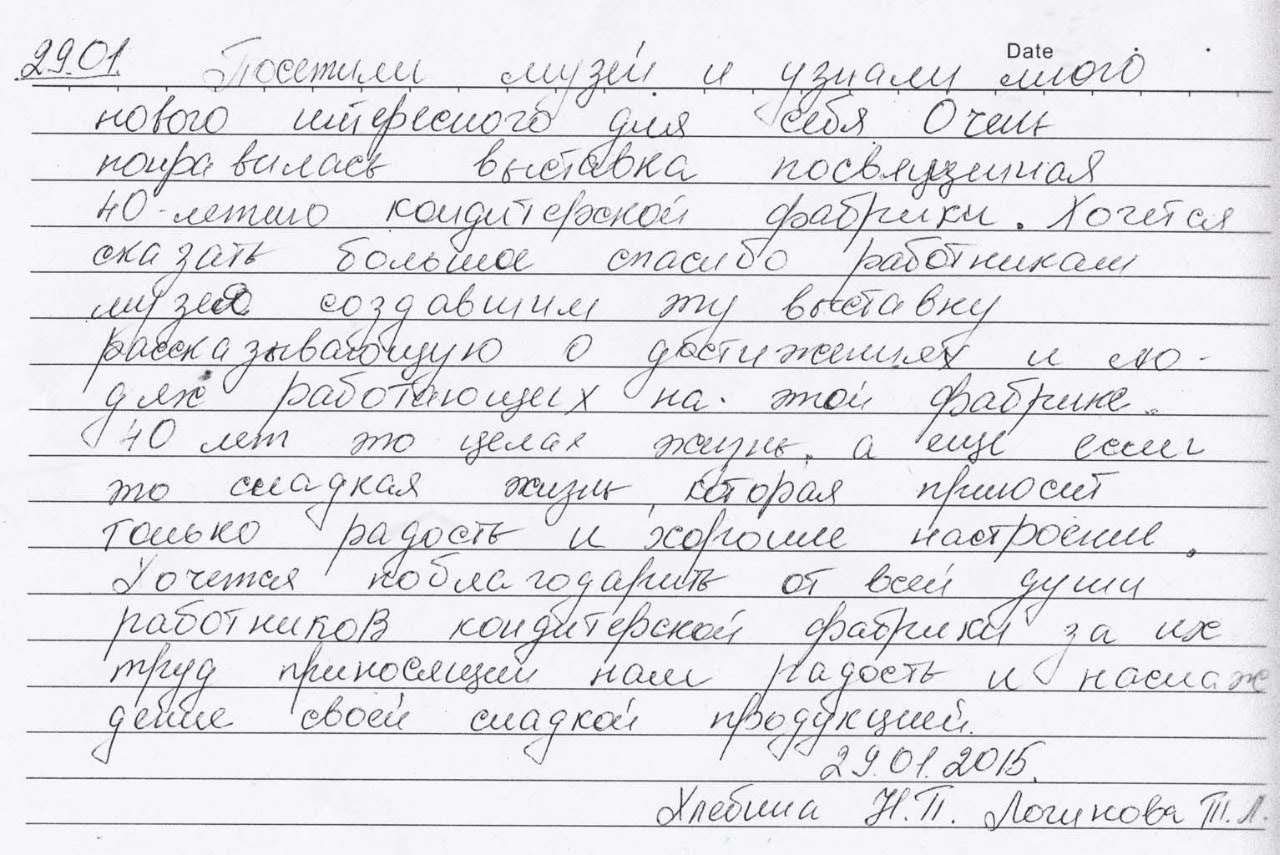 Date
29.01. Посетили музей и узнали много
нового интересного для себя Очень
понравилась выставка посвященная
40-летию кондитерской фабрики. Хочется
сказать большое спасибо работникам
музея создавшим эту выставку
рассказывающую о достижениях и лю-
дях работающих на этой фабрике.
40 лет это целая жизнь, а еще если
это сладкая жизнь, которая приносит
только радость и хорошее настроение.
Хочется поблагодарить от всей души
работников кондитерской фабрики за их
труд приносящий нам радость и наслаж
дение своей сладкой продукцией.
29.01.2015.
Хлебина Н.П. Логинова Т.Л.